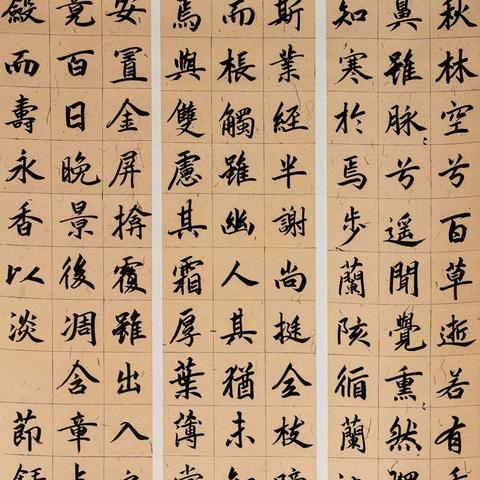 秋林空兮百草逝若有
鼻雖脉〻兮遥聞覺熏〻然
知寒於焉步蘭陔循蘭
斯業經半謝尚挺全枝
而棖觸雖幽人其猶未
焉與雙慮其霜厚葉簿
安置金屏揜覆雖出入
竟百日晚景後凋含章
斂而壽永香以淡節